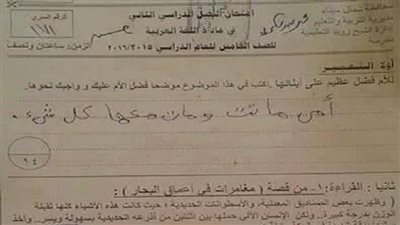 محافظة شمال سيناء
مديرية التربية والتعليم
إدارة الشيخ زويد التعليمية
امتحان الفصل الدراسي الثاني
في مادة اللغة العربية
للصف الخامس للعام الدراسي ٢٠١٦/٢٠١٥
الزمن: ساعتان ونصف
الرقم السري
أولا: التعبير
للأم فضل عظيم على أبنائها. اكتب في هذا الموضوع موضحا فضل الأم عليك و واجبك نحوها.
أمي ماتت ومات معها كل شيء
١٤
ثانيا: القراءة: ١- من قصة ( مغامرات في أعماق البحار ) :
( وظهرت بعض الصناديق المعدنية، والأسطوانات الحديدية ؛ حيث كانت هذه الأشياء كلها ثقيلة
الوزن بدرجة كبيرة.. ولكن الإنسان الآلي حملها بين اثنتين من أذرعه الحديدية بسهولة ويسر.. وأخذ